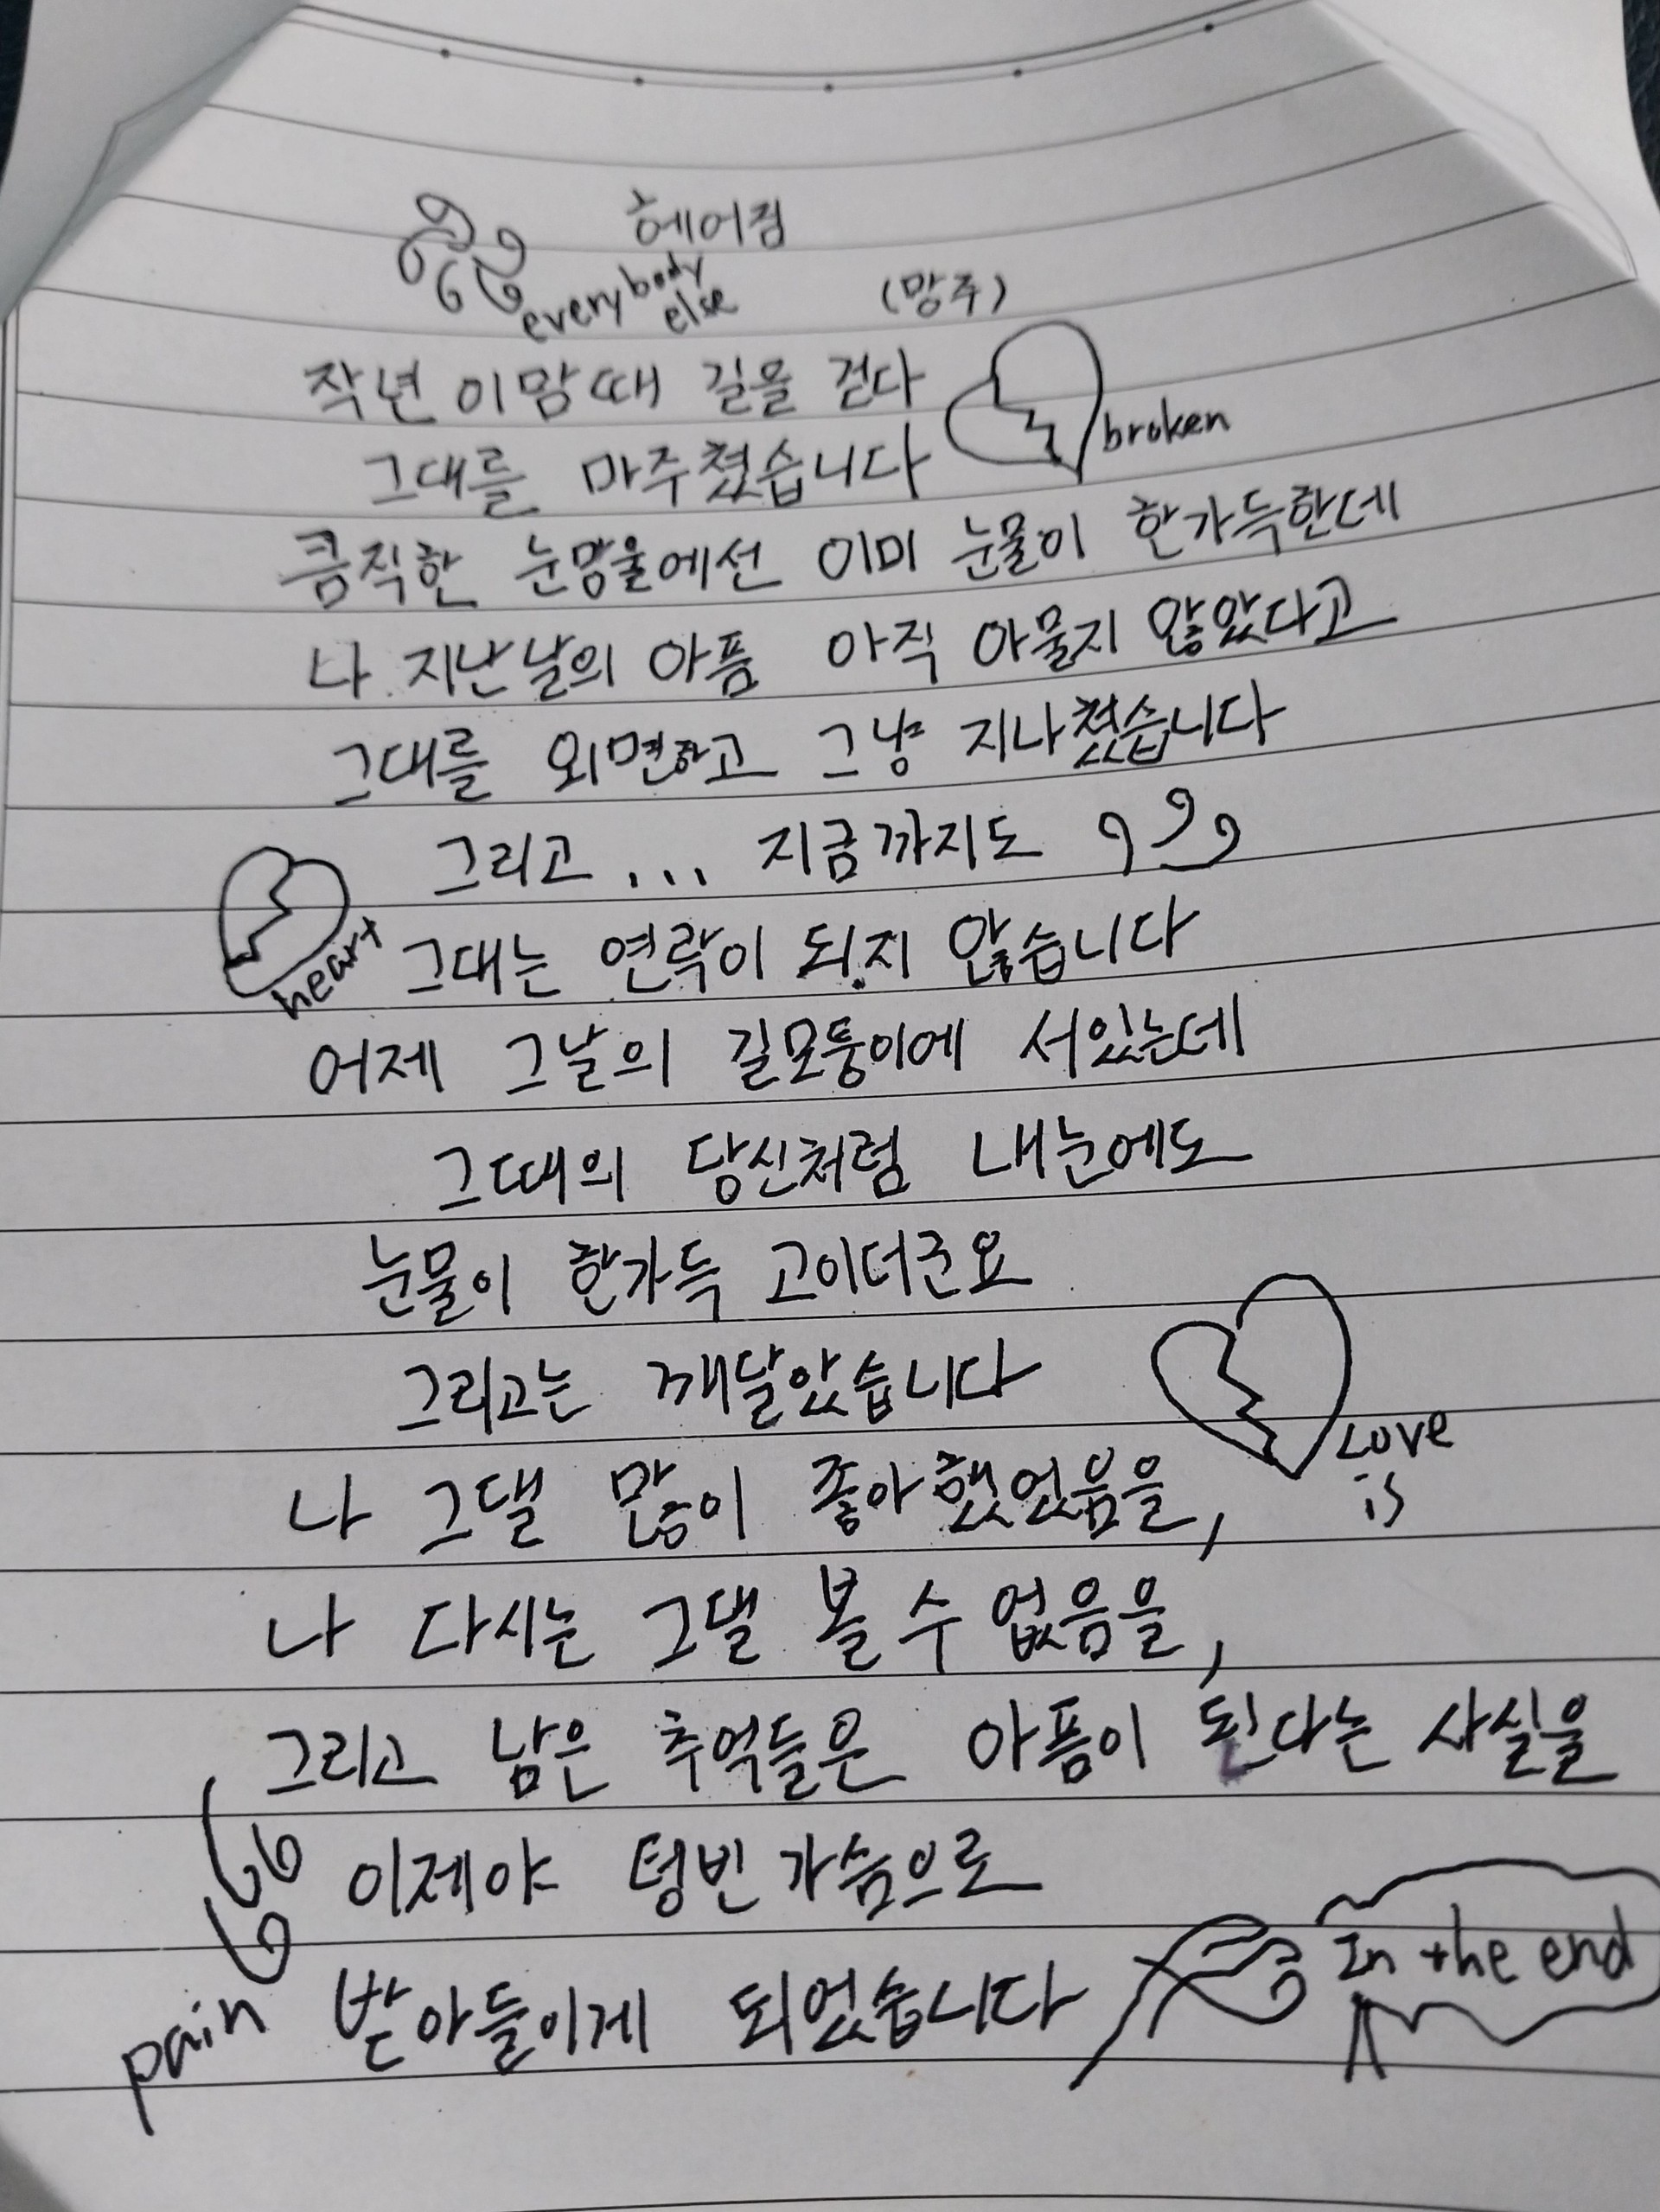 헤어짐
everybody
else
(망주)
작년 이맘때 길을 걷다
broken
그대를 마주쳤습니다
큼직한 눈망울에선 이미 눈물이 한가득한데
나 지난날의 아픔 아직 아물지 않았다고
그대를 외면하고 그냥 지나쳤습니다
그리고... 지금까지도
heart
그대는 연락이 되지 않습니다
어제 그날의 길모퉁이에 서있는데
그때의 당신처럼 내눈에도
눈물이 한가득 고이더군요
그리고는 깨달았습니다
Love
is
나 그댈 많이 좋아했었음을,
나 다시는 그댈 볼 수 없음을,
그리고 남은 추억들은 아픔이 된다는 사실을
이제야 텅빈 가슴으로
In the end
pain
받아들이게 되었습니다